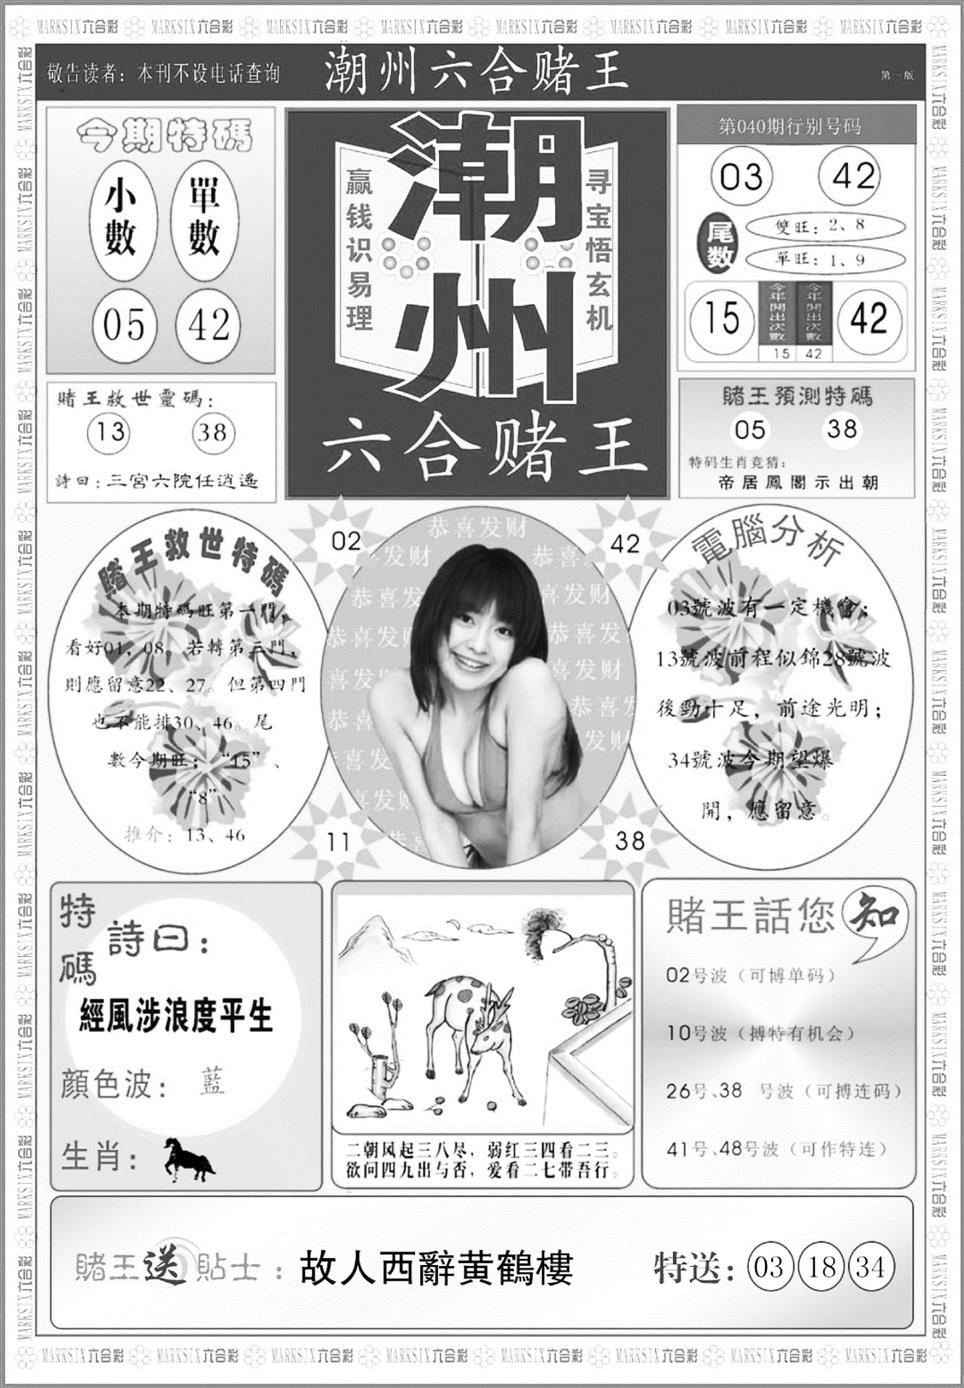 MARKSIX六合彩
敬告读者：本刊不设电话查询
潮州六合赌王
第一版
今期特碼
小數
單數
05
42
潮州
赢钱识易理
寻宝悟玄机
六合赌王
第040期行别号码
03
42
尾数
雙旺：2、8
單旺：1、9
15
今年開出次數
今年開出次數
42
15
42
賭王救世靈碼：
13
38
詩曰：三宮六院任逍遙
賭王預測特碼
05
38
特码生肖竞猜：
帝居鳳閣示出朝
賭王救世特碼
本期特碼旺第一門，
看好01，08。若轉第三門，
則應留意22、27。但第四門
也不能排30、46。尾
數今期旺；“15”、
“8”
推介：13、46
02
42
恭喜发财
11
38
電腦分析
03號波有一定機會；
13號波前程似錦28號波
後勁十足，前途光明；
34號波今期望爆
開，應留意。
特碼詩曰：
經風涉浪度平生
顔色波：藍
生肖：
二朝风起三八尽，弱红三四看二三。
欲问四九出与否，爱看二七带吾行。
賭王話您知
02号波（可博单码）
10号波（搏特有机会）
26号、38 号波（可搏连码）
41号、48号波（可作特连）
賭王送貼士：故人西辭黄鶴樓
特送：03 18 34